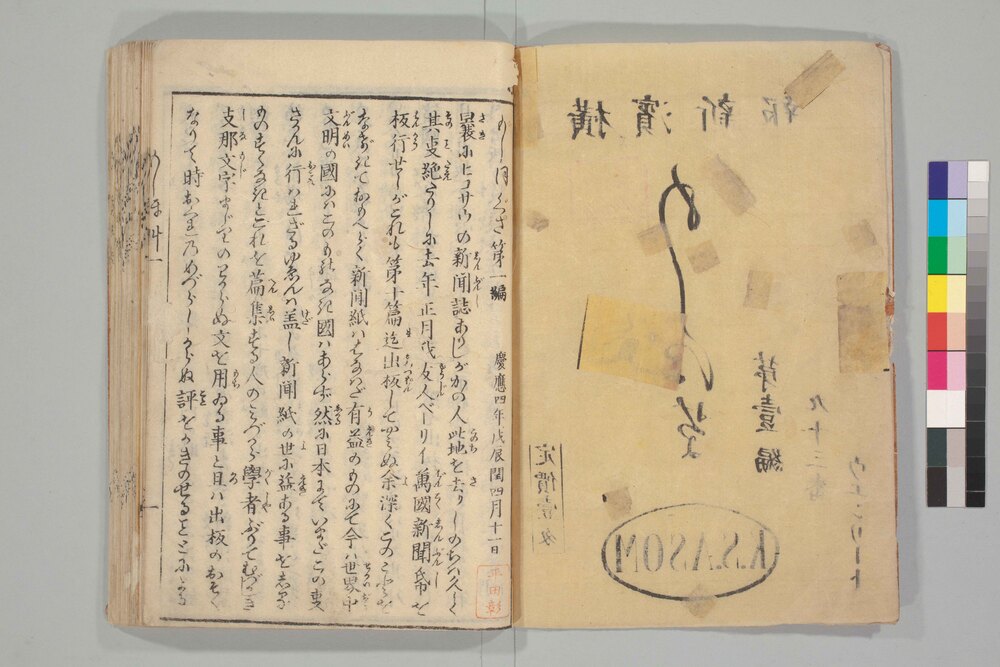 横濱新報
もしほ草
第壹編
九十三番
ウェンリート
定價壹匁
もしほぐさ第一編 慶應四年戊辰閏四月十一日
曩にヒコサウの新聞誌ありしがかの人此地を去りしのちは久しく
其事絶たりしに去年正月我友人ベーリイ萬國新聞帋を
板行せしがこれも第十篇迄出板してやみぬ余深くこの
なげきておもへらく新聞紙ハはなはだ有益のものにて今ハ世界中
文明の國にハこのものなき國ハあらず然に日本にていまだこの事
さかんに行はれざるゆゑんハ盖し新聞紙の世に益ある事をしる
ものすくなきとこれを篇集する人のみづから學者ぶりてむづかき
支那文字まじりのわからぬ文を用ゐる事と且ハ出板のおそく
なりて時おくれのめづらしからぬ評をかきのせるとこゝによる
もしほ草 一